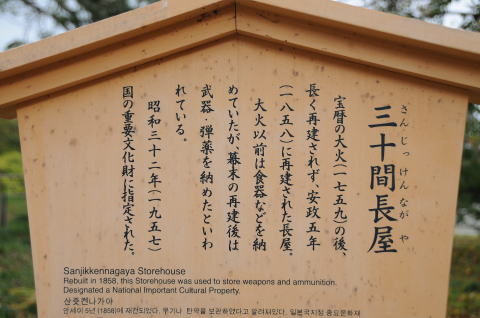 三十間長屋
さんじっけんながや
宝暦の大火(一七五九)の後、
長く再建されず、安政五年
(一八五八)に再建された長屋。
大火以前は食器などを納
めていたが、幕末の再建後は
武器・弾薬を納めたといわ
れている。
昭和三十二年(一九五七)
国の重要文化財に指定された。
Sanjikkennagaya Storehouse
Rebuilt in 1858, this Storehouse was used to store weapons and ammunition.
Designated a National Important Cultural Property.
산줏켄나가야
안세이 5년 (1858)에 재건되었다. 무기나 탄약을 보관하였다고 알려져있다. 일본국지정 중요문화재